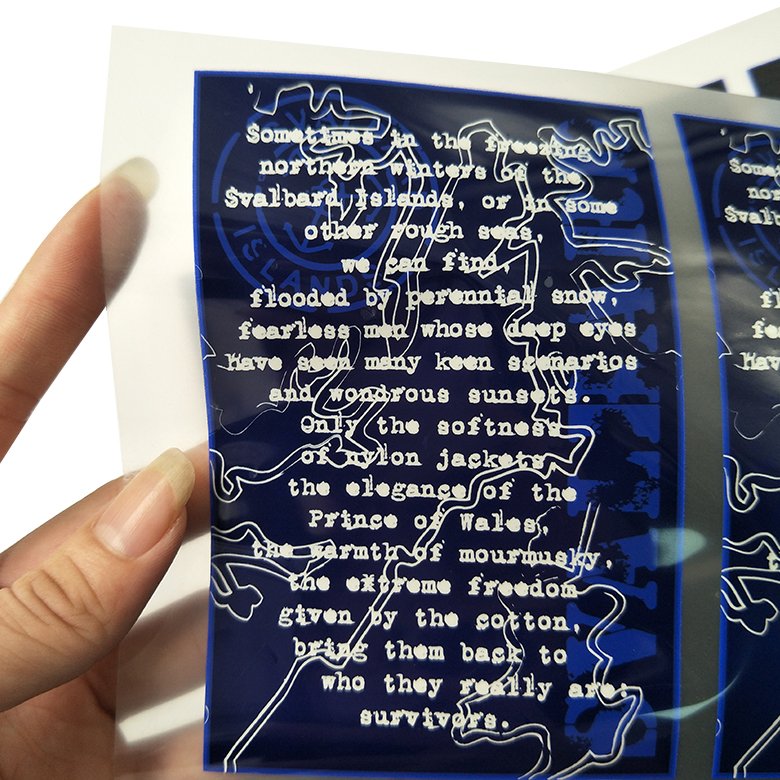 Sometimes in the freezing
northern winters of the
Svalbard Islands, or in some
other rough seas,
we can find,
flooded by perennial snow,
fearless men whose deep eyes
have seen many keen scenarios
and wondrous sunsets.
Only the softness
of nylon jackets,
the elegance of the
Prince of Wales,
the warmth of mourmusky,
the extreme freedom
given by the cotton,
bring them back to
who they really are:
survivors.
ISLANDS
SVALBARD
Some
nor
Sval
fl
fea
hav